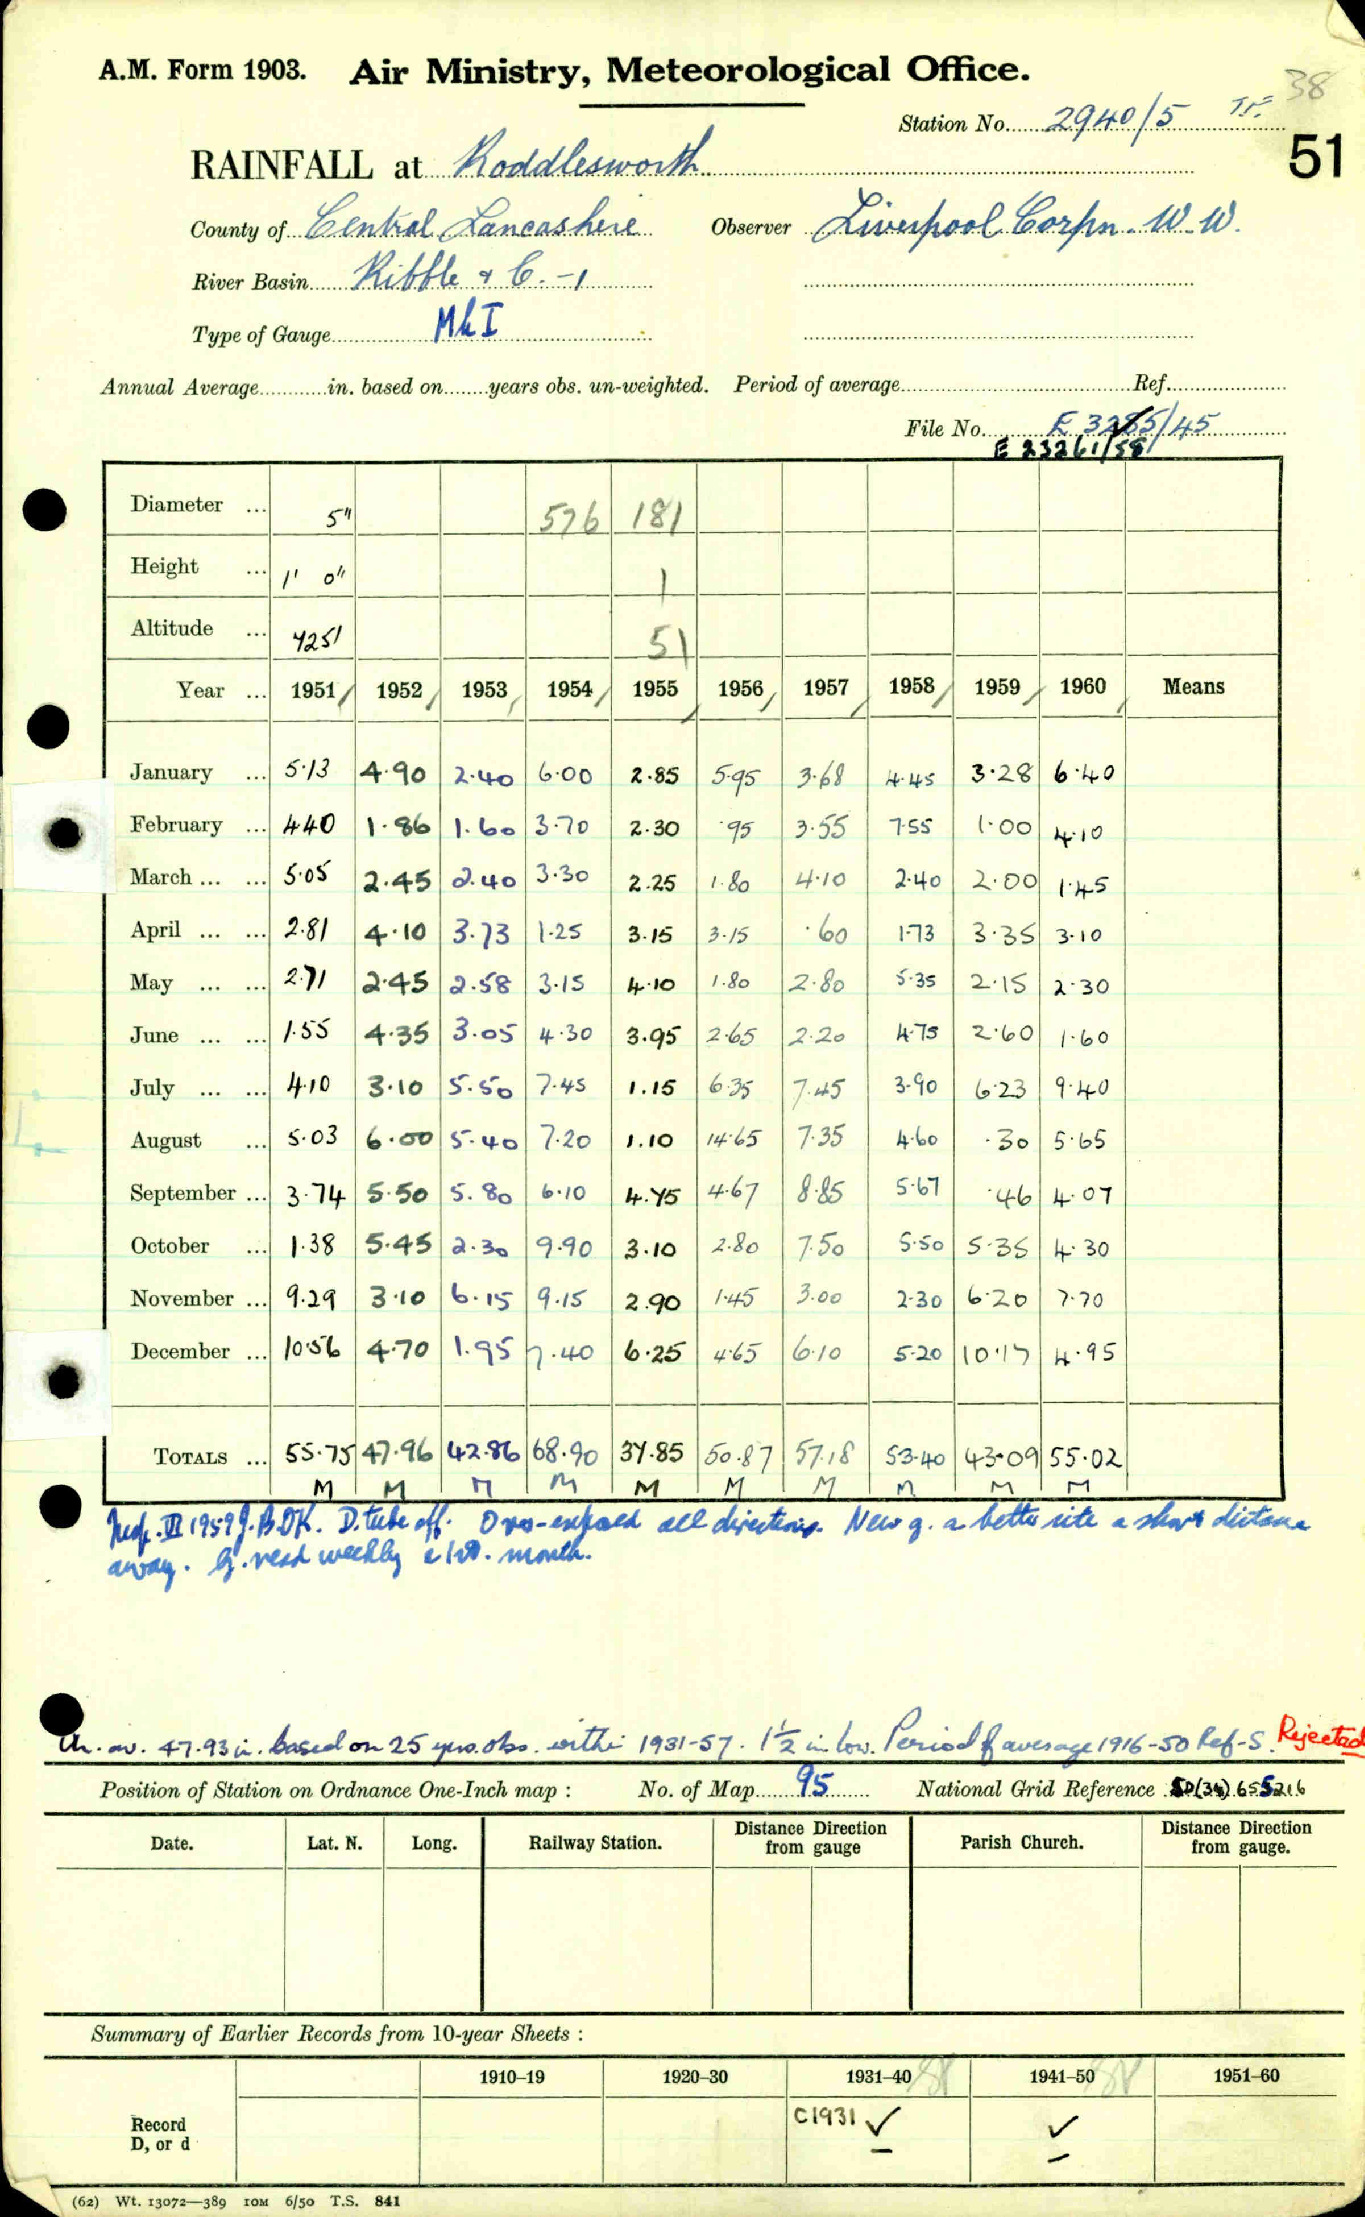 38
A.M. Form 1903. Air Ministry, Meteorological Office.
Station No. 2940/5
51
RAINFALL at Roddlesworth
County of Central Lancashire Observer Liverpool Corpn. W.W.
River Basin Ribble & C. -1
Type of Gauge Mk I
Annual Average in. based on years obs. un-weighted. Period of average Ref.
File No. E 3285/45
E 23261/58
Diameter ... 5" 576 181
Height ... 1' 0" 1
Altitude ... 425' 51
Year ... 1951 1952 1953 1954 1955 1956 1957 1958 1959 1960 Means
January ... 5.13 4.90 2.40 6.00 2.85 5.95 3.68 4.45 3.28 6.40
February ... 4.40 1.86 1.60 3.70 2.30 .95 3.55 7.55 1.00 4.10
March ... ... 5.05 2.45 2.40 3.30 2.25 1.80 4.10 2.40 2.00 1.45
April ... ... 2.81 4.10 3.73 1.25 3.15 3.15 .60 1.73 3.35 3.10
May ... ... 2.71 2.45 2.58 3.15 4.10 1.80 2.80 5.35 2.15 2.30
June ... ... 1.55 4.35 3.05 4.30 3.95 2.65 2.20 4.75 2.60 1.60
July ... ... 4.10 3.10 5.50 7.45 1.15 6.35 7.45 3.90 6.23 9.40
August ... 5.03 6.00 5.40 7.20 1.10 14.65 7.35 4.60 .30 5.65
September ... 3.74 5.50 5.80 6.10 4.75 4.67 8.85 5.67 .46 4.07
October ... 1.38 5.45 2.30 9.90 3.10 2.80 7.50 5.50 5.35 4.30
November ... 9.29 3.10 6.15 9.15 2.90 1.45 3.00 2.30 6.20 7.70
December ... 10.56 4.70 1.95 7.40 6.25 4.65 6.10 5.20 10.17 4.95
TOTALS ... 55.75 47.96 42.86 68.90 37.85 50.87 57.18 53.40 43.09 55.02
M M M M M M M M M M
Insp. III 1959 J.B.DK. D. tube off. Over-exposed all directions. New g. a better site a short distance
away. G. read weekly & 1st. month.
Un. av. 47.93 in. based on 25 yrs. obs. within 1931-57. 1½ in low. Period of average 1916-50 Ref-S. Rejected
Position of Station on Ordnance One-Inch map : No. of Map 95 National Grid Reference SD(34) 655216
Date. Lat. N. Long. Railway Station. Distance Direction from gauge Parish Church. Distance Direction from gauge.
Summary of Earlier Records from 10-year Sheets :
1910–19 1920–30 1931–40 1941–50 1951–60
Record C1931 ✓ ✓
D, or d – –
(62) Wt. 13072—389 IOM 6/50 T.S. 841